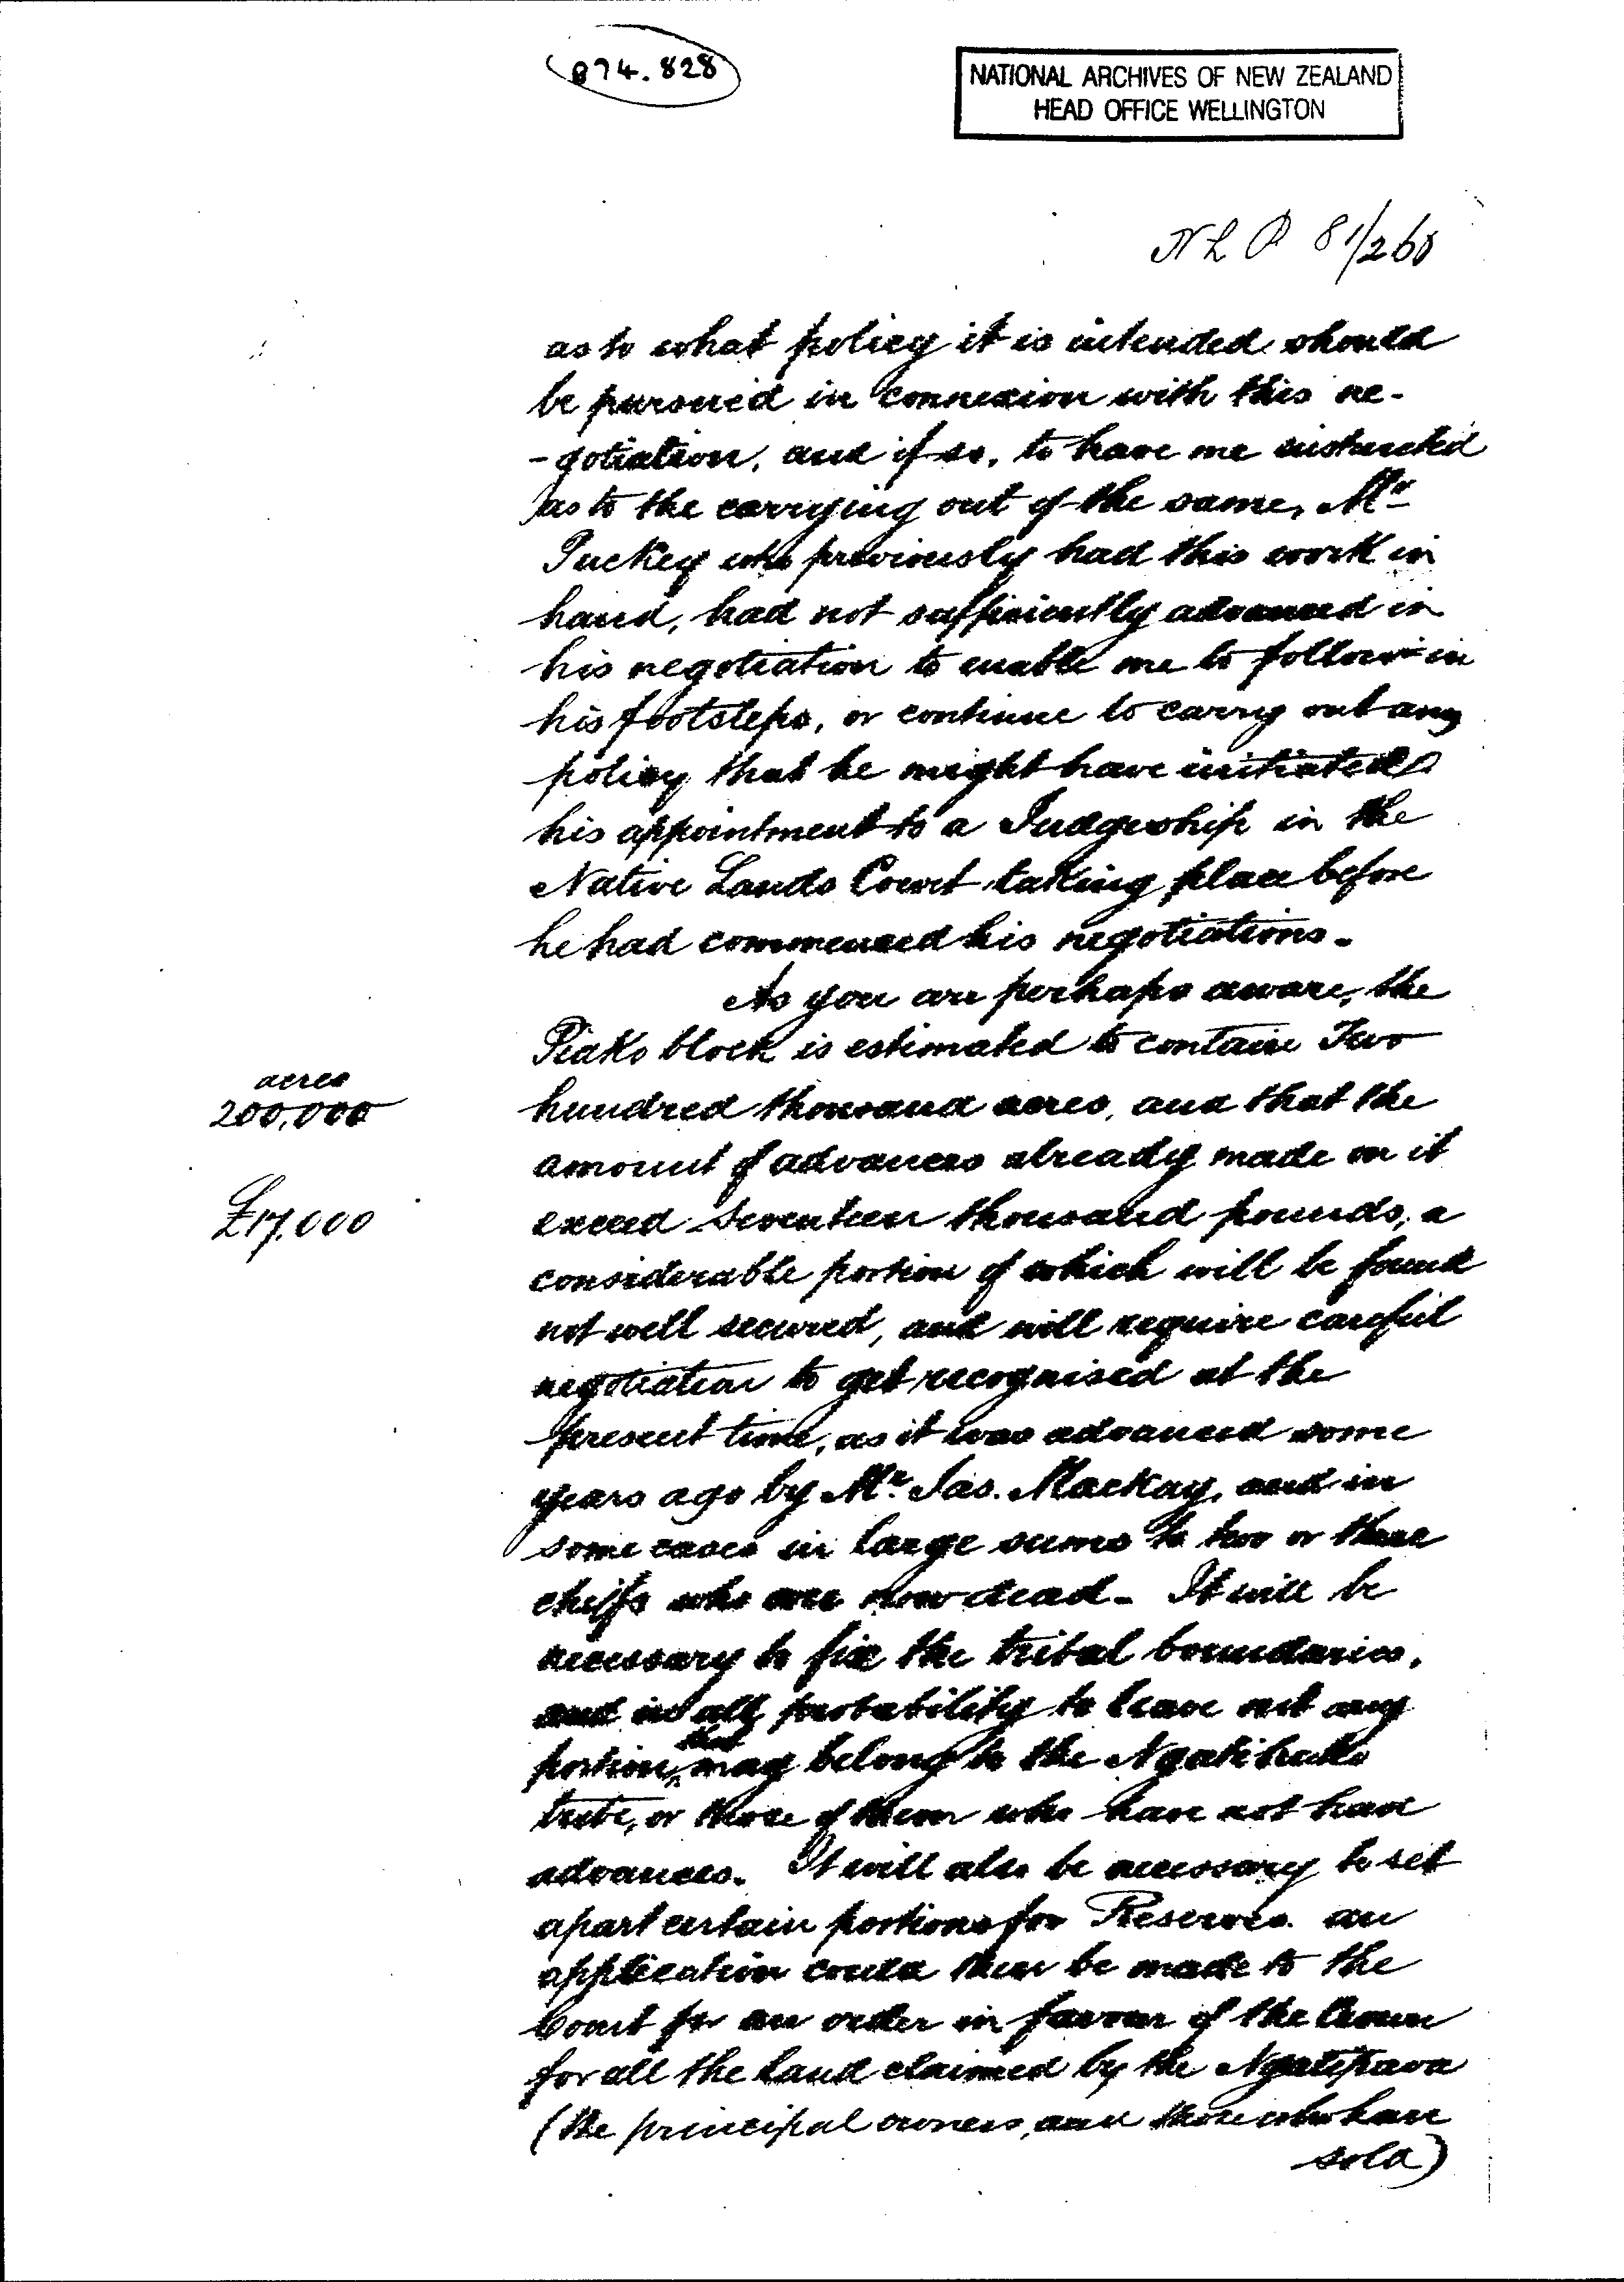 874.828
NATIONAL ARCHIVES OF NEW ZEALAND
HEAD OFFICE WELLINGTON
N L P 81/260
as to what policy it is intended should
be pursued in connexion with this ne-
-gotiation, and if so, to have me instructed
as to the carrying out of the same, Mr
Puckey who previously had this work in
hand, had not sufficiently advanced in
his negotiation to enable me to follow in
his footsteps, or continue to carry out any
policy that he might have initiated
his appointment to a Judgeship in the
Native Lands Court taking place before
he had commenced his negotiations.
As you are perhaps aware, the
Piako block is estimated to contain Two
acres
200,000
hundred thousand acres, and that the
amount of advances already made on it
£17,000
exceed seventeen thousand pounds, a
considerable portion of which will be found
not well secured, and will require careful
negotiation to get recognised at the
present time, as it was advanced some
years ago by Mr. Jas. Mackay, and in
some cases in large sums to two or three
cheifs who are now dead. It will be
necessary to fix the tribal boundaries,
and in all probability to leave out any
portion that may belong to the Ngatihako
tribe, or those of them who have not had
advances. It will also be necessary to set
apart certain portions for Reserves. an
application could then be made to the
Court for an order in favour of the Crown
for all the land claimed by the Ngatipaoa
(the principal owners, and those who have
sold)